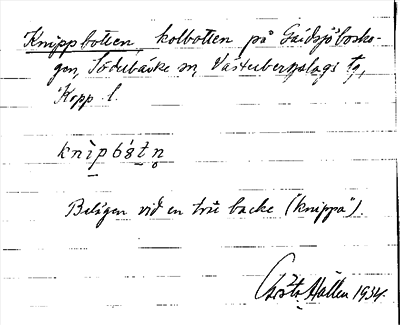 Knippbotten, kolbotten på Gaddsjöbosko-
gen, Söderbärke sn, Västerbergslags fg,
Kopp. l.
knìpbát n
Belägen vid en trä backe (knippä).
Hallen 1934.